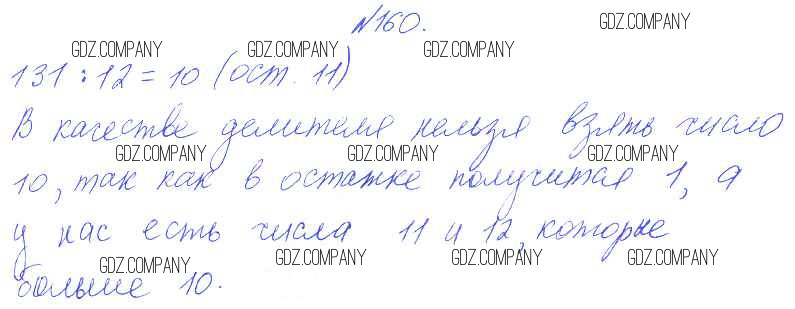 №160.
131 : 12 = 10 (ост. 11)
В качестве делителя нельзя взять число
10, так как в остатке получится 1, а
у нас есть числа 11 и 12, которые
больше 10.
GDZ.COMPANY
GDZ.COMPANY
GDZ.COMPANY
GDZ.COMPANY
GDZ.COMPANY
GDZ.COMPANY
GDZ.COMPANY
GDZ.COMPANY
GDZ.COMPANY
GDZ.COMPANY
GDZ.COMPANY
GDZ.COMPANY
GDZ.COMPANY